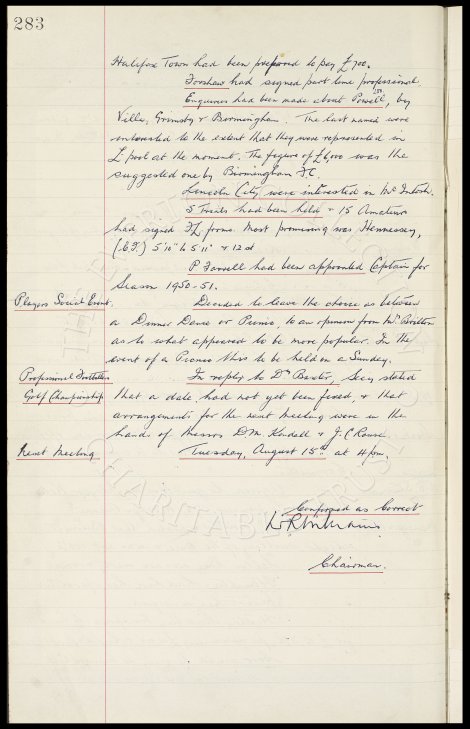 283
Halifax Town had been prepared to pay £700.
Forshaw had signed part time professional
Enquiries had been made about Powell, by
Villa, Grimsby & Birmingham. The last named were
interested to the extent that they were represented in
L'post at the moment. The figure of £6,000 was the
suggested one by Birmingham F.C.
Lincoln City were interested in McIntosh.
5 Trials had been held & 15 Amateurs
had signed F.L. forms. Most promising was Hennessey,
5'10" to 5'11" & 12 st
P Farrell had been appointed Captain for
Season 1950-51.
Players Social Event. Decided to leave the choice as between
a Dinner Dance or Picnic, to an opinion from Mr
as to what appeared to be more popular. In the
event of a Picnic this to be held on a Sunday.
Professional Footballers In reply to Dr Baxter, Secy stated
Golf Championship that a date had not yet been fixed, & that
arrangements for the next meeting were in the
hands of Messrs D.M. Kendall & J.C. Rouse.
Next Meeting Tuesday, August 15th at 4pm.
Confirmed as Correct
Chairman.
CHARITABLE TRUST